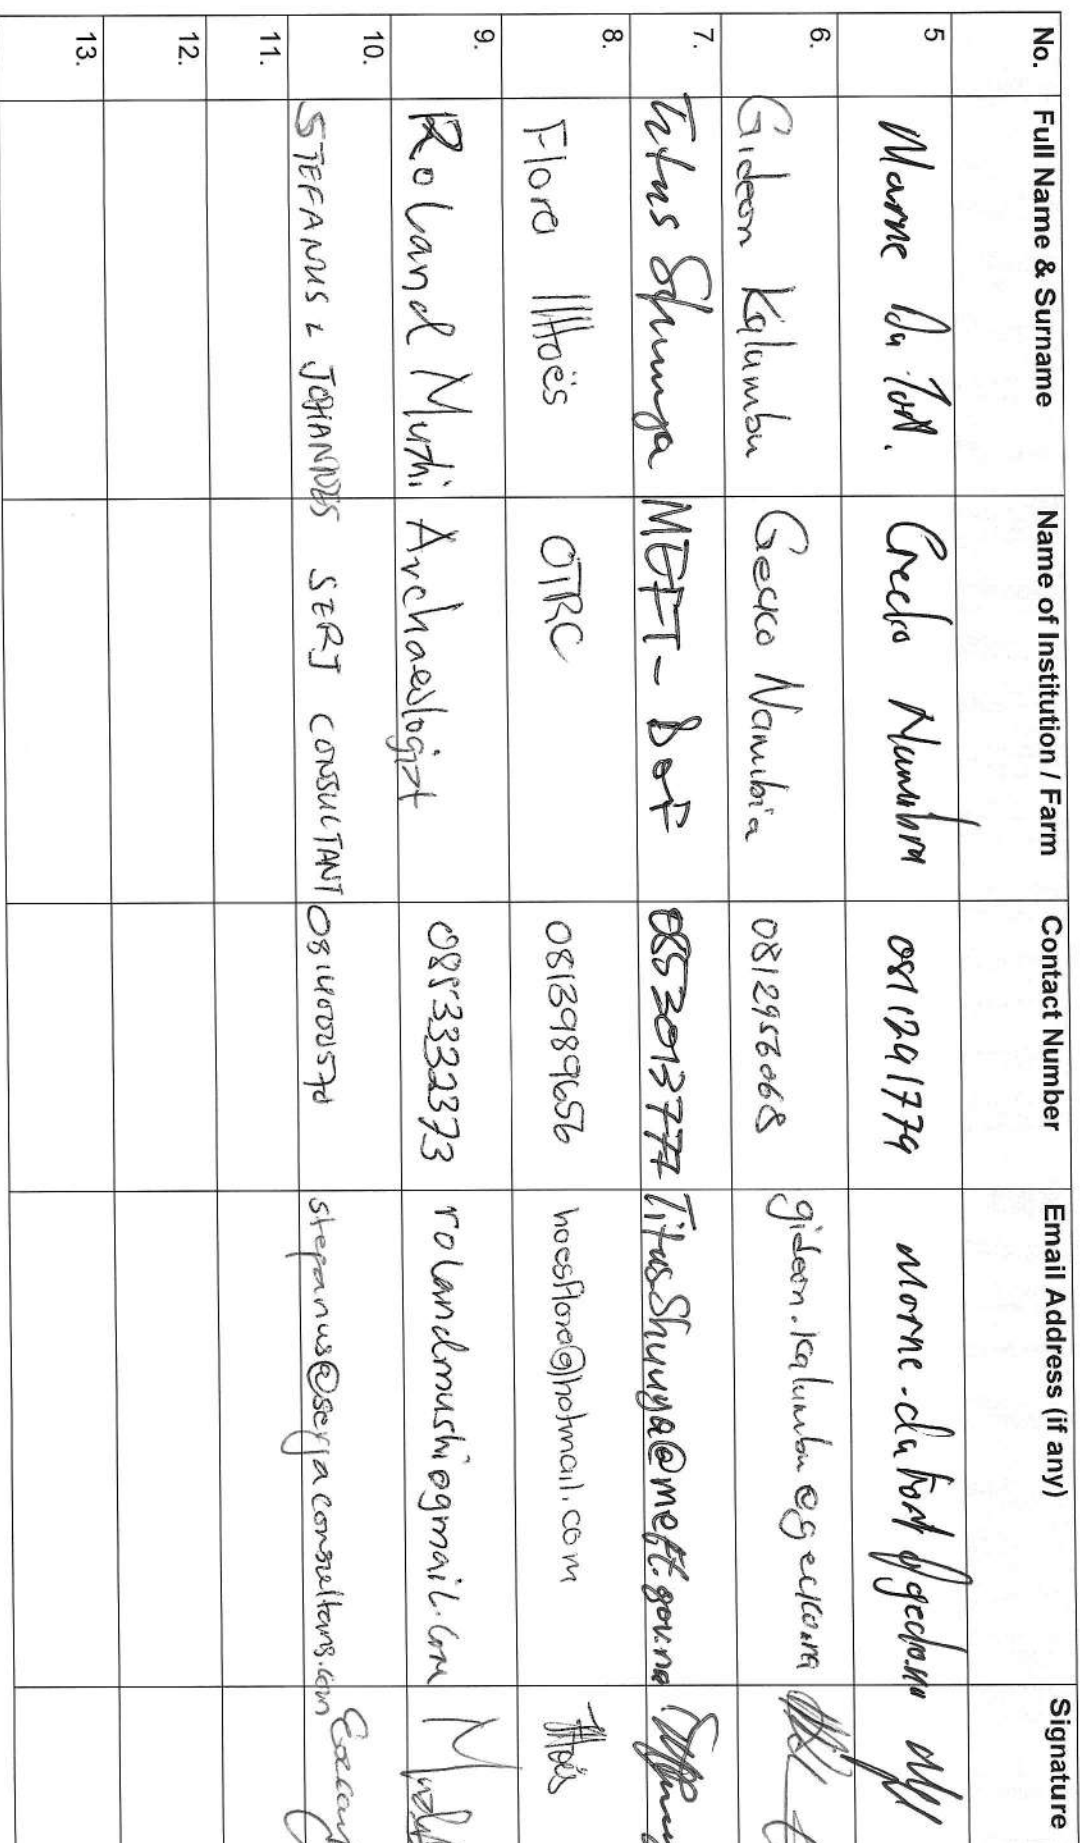 No. Full Name & Surname Name of Institution / Farm Contact Number Email Address (if any) Signature
5 Morne Du Toit. Gecko Namibia 0811291779
6. Gideon Kalumbu Gecko Namibia 0812956068 gideon.kalumbu@gecko.na
7. Titus Shuuya MEFT- DoF 0853013777 Titus.Shuuya@meft.gov.na
8. Flora ǁHoës OTRC 0813989656 hoesflora@hotmail.com
9. Roland Mushi Archaeologist 0853332373 rolandmushi@gmail.com
10. STEFANUS L JOHANNES SERJ CONSULTANT
11.
12.
13.